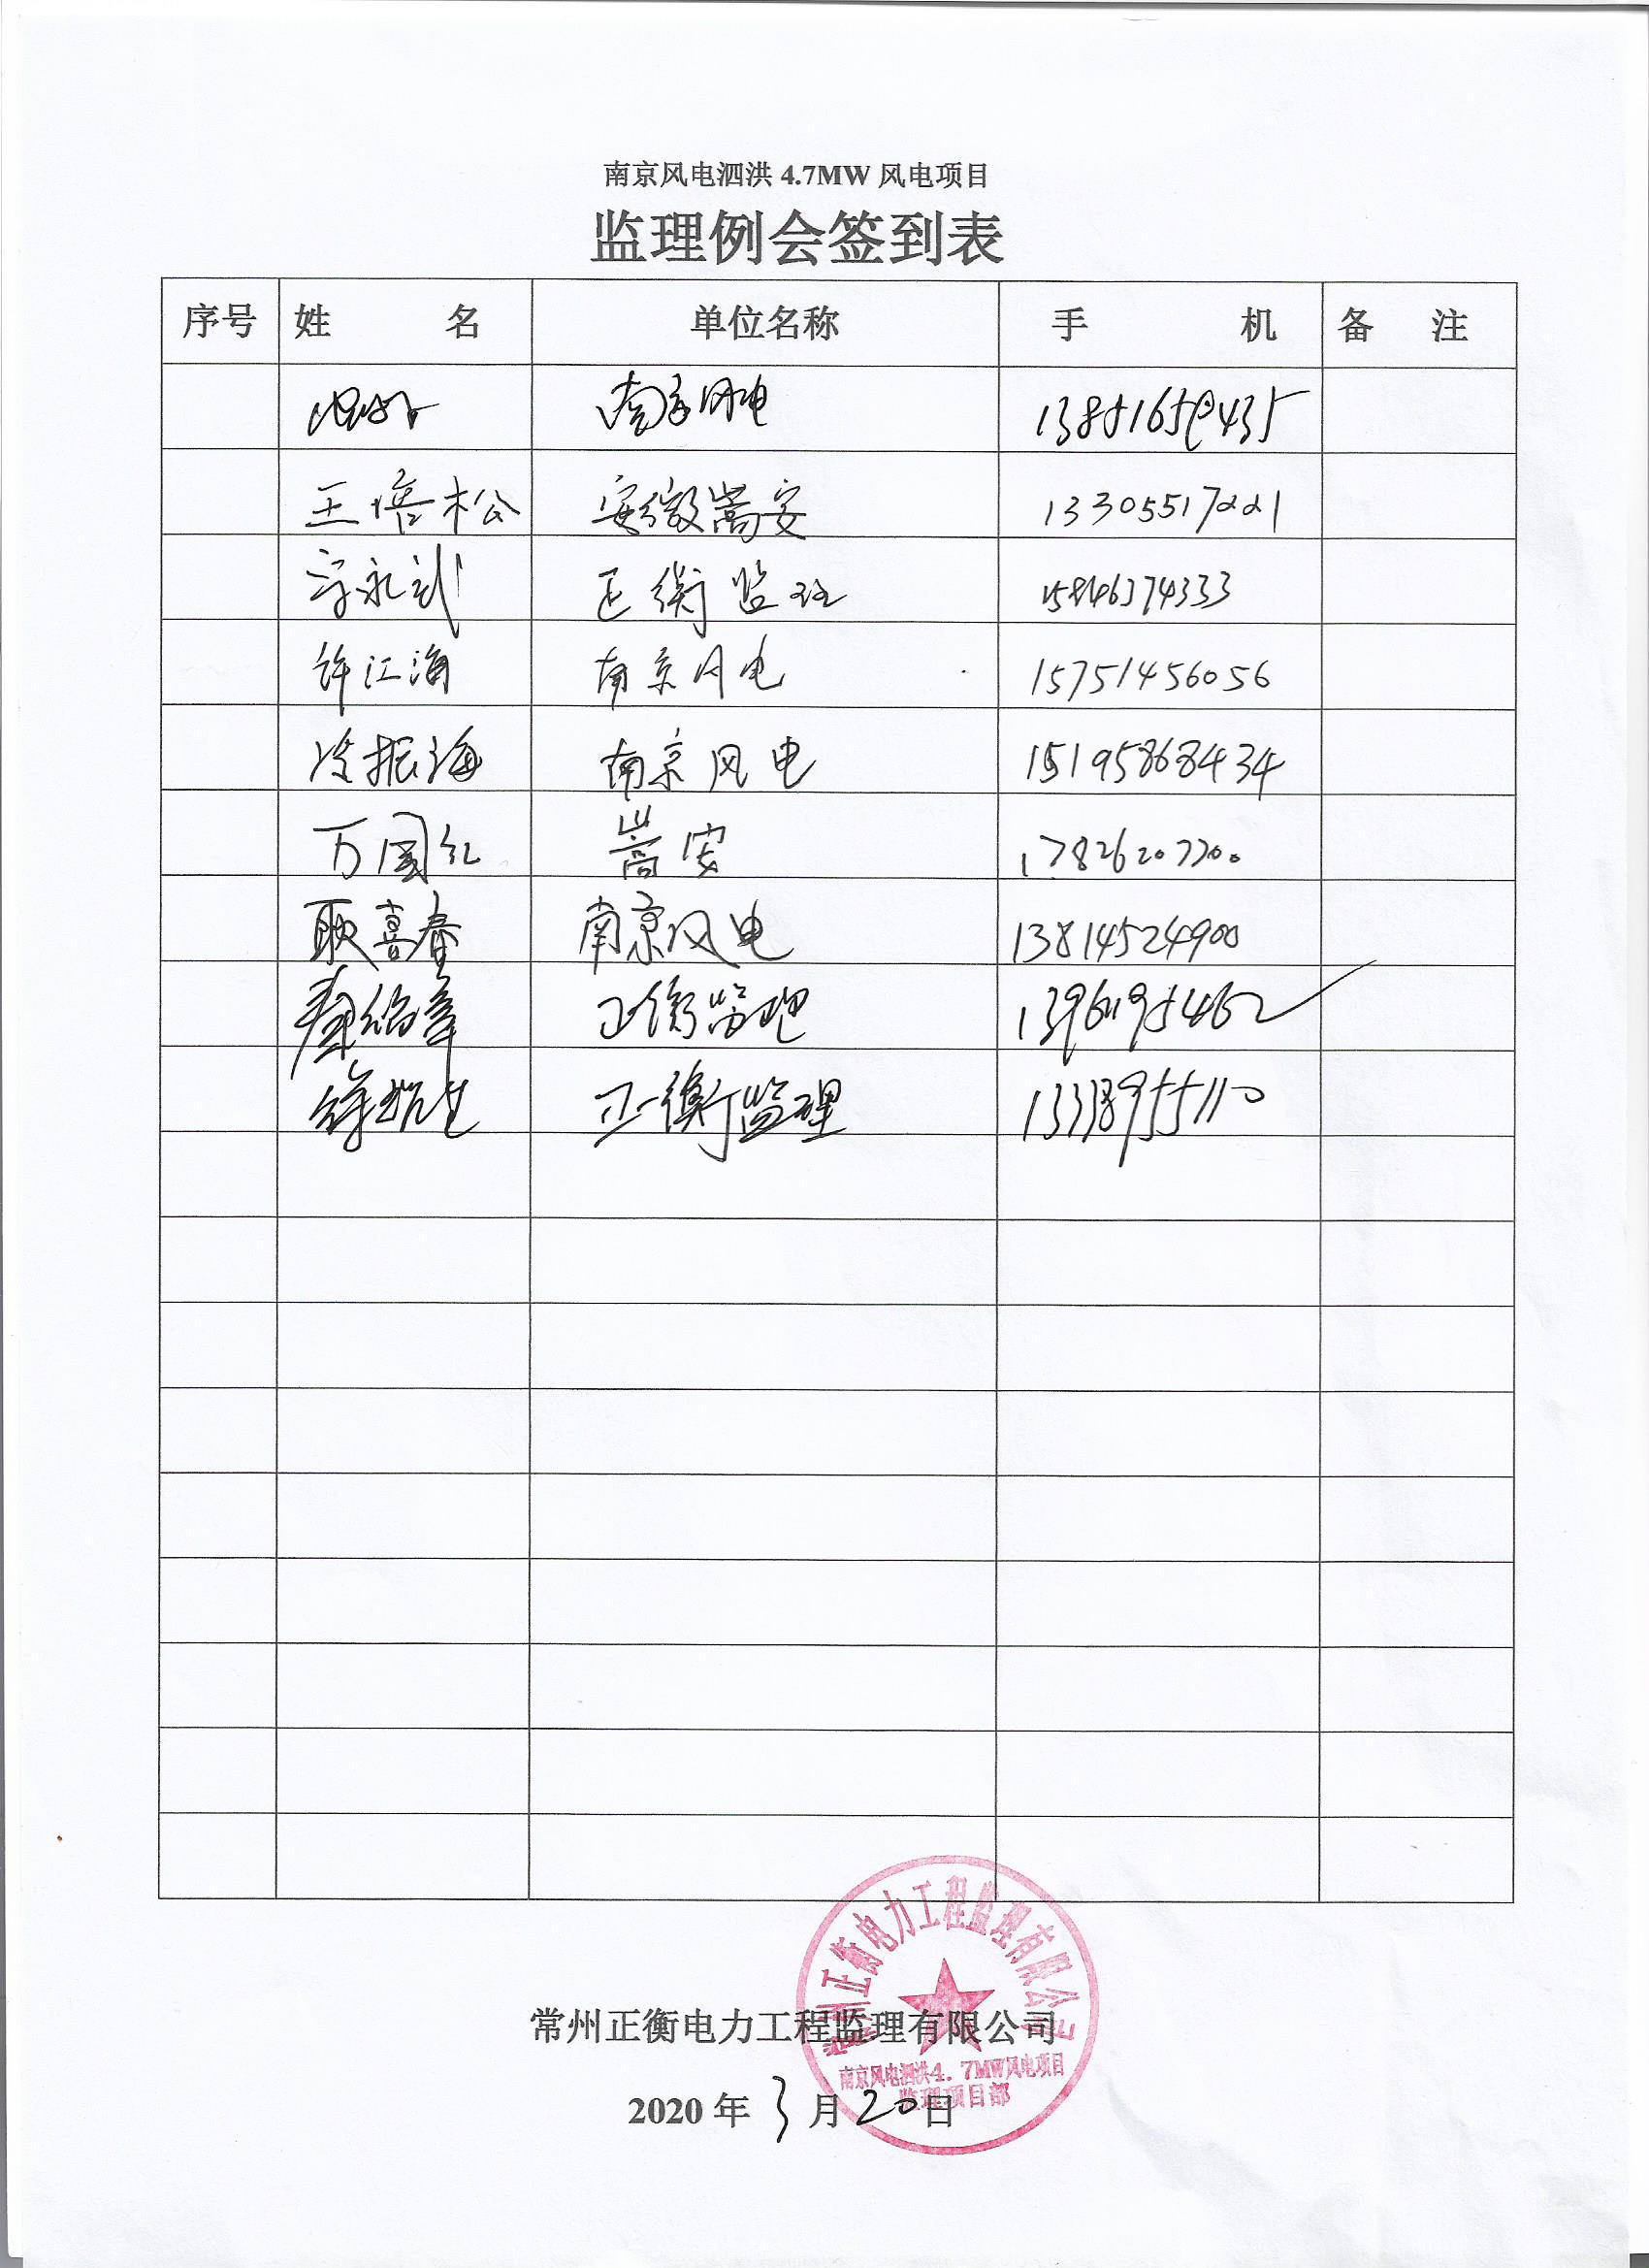 南京风电泗洪 4.7MW 风电项目
监理例会签到表
序号 姓 名 单位名称 手 机 备 注
南京风电 13851650435
王培松 安徽嵩安 13305517221
永武 正衡监理
许江海 南京风电 15751456056
冷振海 南京风电 15195868434
万国红 嵩安 17826207700
耿喜春 南京风电 13814524900
正衡监理
正衡监理 13338955110
常州正衡电力工程监理有限公司
2020 年 3 月 20 日
常州正衡电力工程监理有限公司
南京风电泗洪4.7MW风电项目
监理项目部